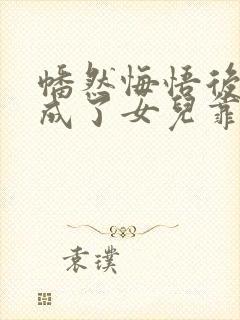 幡然悔悟後
成了女兒靠
袁璞